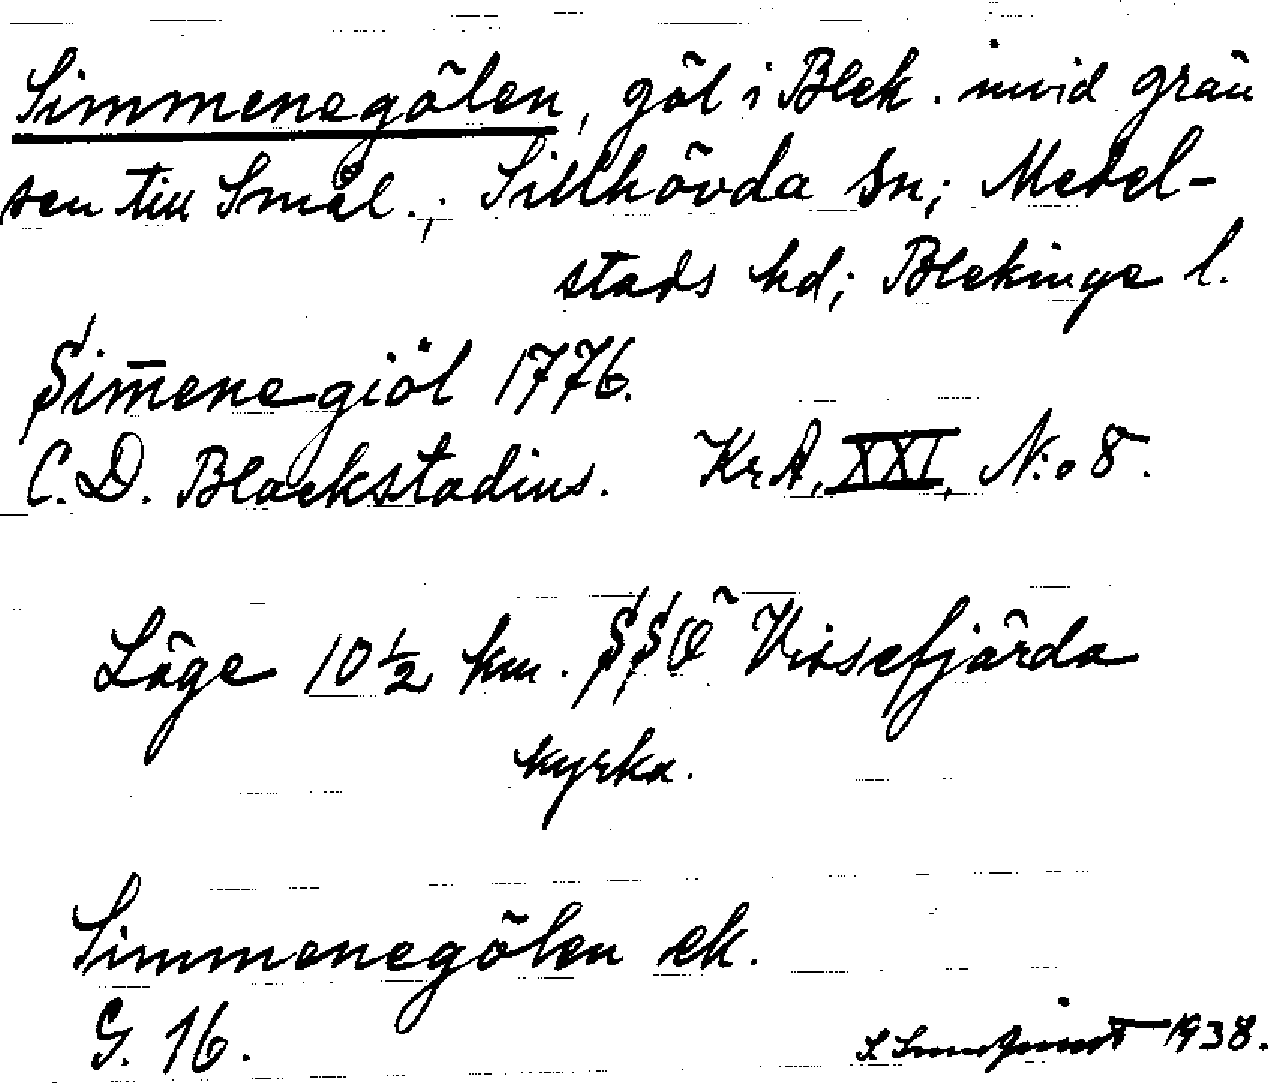 Simmenegölen, göl i Blek. invid grän
sen till Smål.; Sillhövda sn; Medel-
stads hd; Blekinge l.
Sim̄enegiöl 1776.
C. D. Blackstadius. KrA, XXI, N:o 8.
Läge 10 ½ km. SSÖ Vissefjärda
kyrka.
Simmenegölen ek.
G. 16.
1938.